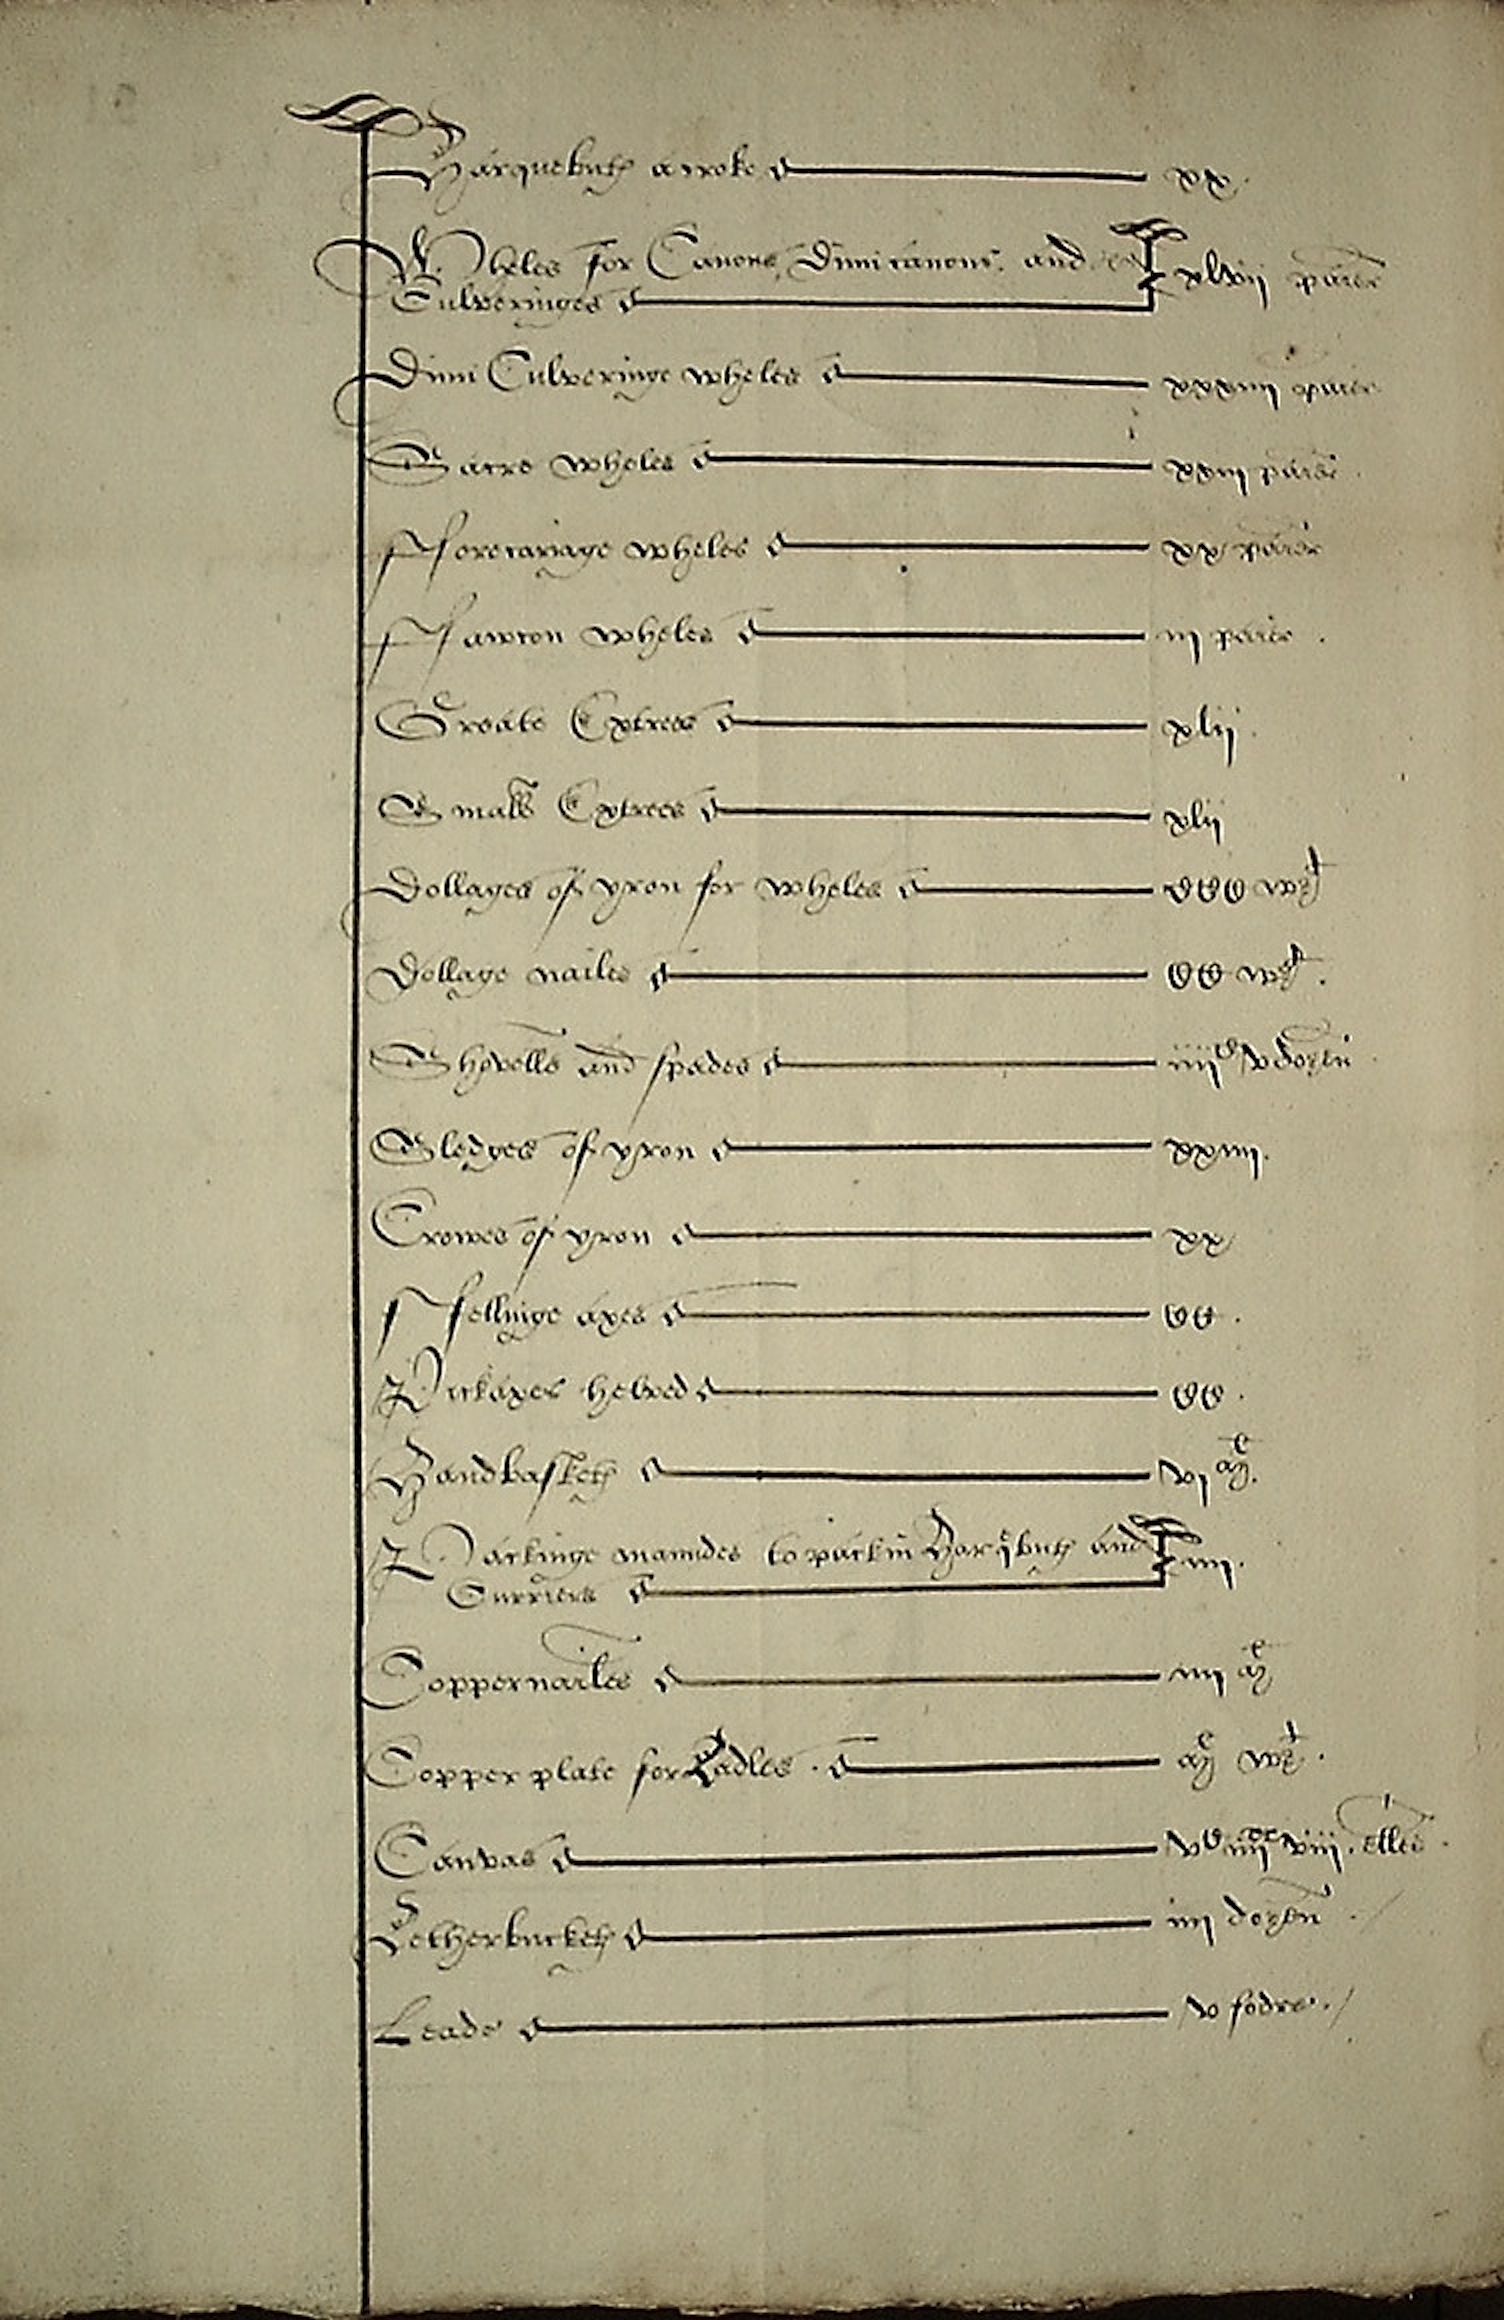 Harquebuttes a croke xx.
Wheles for Canons, Dimi canons, and
Culveringes xlvii paier
Dimi Culveringe wheles xxxiiii paier
Sacre wheles xxiii paier.
fforecariage wheles xx paier
ffawcon wheles iii paier.
Greate Extrees xlii.
Smalle Extrees xlii
Dollages of yron for wheles
Dollage nailes
Shovells and spades iiiic v dozen
Sledges of yron xxiiii.
Crowes of yron xx
ffellinge axes cc.
Pickaxes helved cc.
Handbaskettes vi
Packinge maundes to pack in Harquebuttes and
Curriers iiii.
Coppernailes iiii
Copper plate for Ladles.
Canvas vc iiiixx viii. elles.
Letherbuckettes iiii dozen.
Leade v fodre./